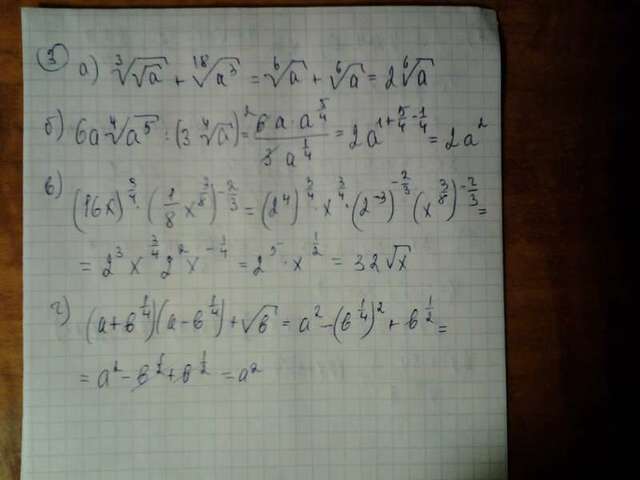 ③ а) ∛(√a) + ¹⁸√(a³) = ⁶√a + ⁶√a = 2⁶√a
б) 6a ⁴√(a⁵) : (3 ⁴√a) = (6a · a^(5/4)) / (3a^(1/4)) = 2a^(1+5/4-1/4) = 2a²
в) (16x)^(3/4) · (1/8 x^(3/8))^(-2/3) = (2⁴)^(3/4) · x^(3/4) · (2⁻³)^(-2/3) (x^(3/8))^(-2/3) =
= 2³ x^(3/4) 2² x^(-1/4) = 2⁵ · x^(1/2) = 32√x
г) (a+b^(1/4))(a-b^(1/4)) + √b = a² - (b^(1/4))² + b^(1/2) =
= a² - b^(1/2) + b^(1/2) = a²